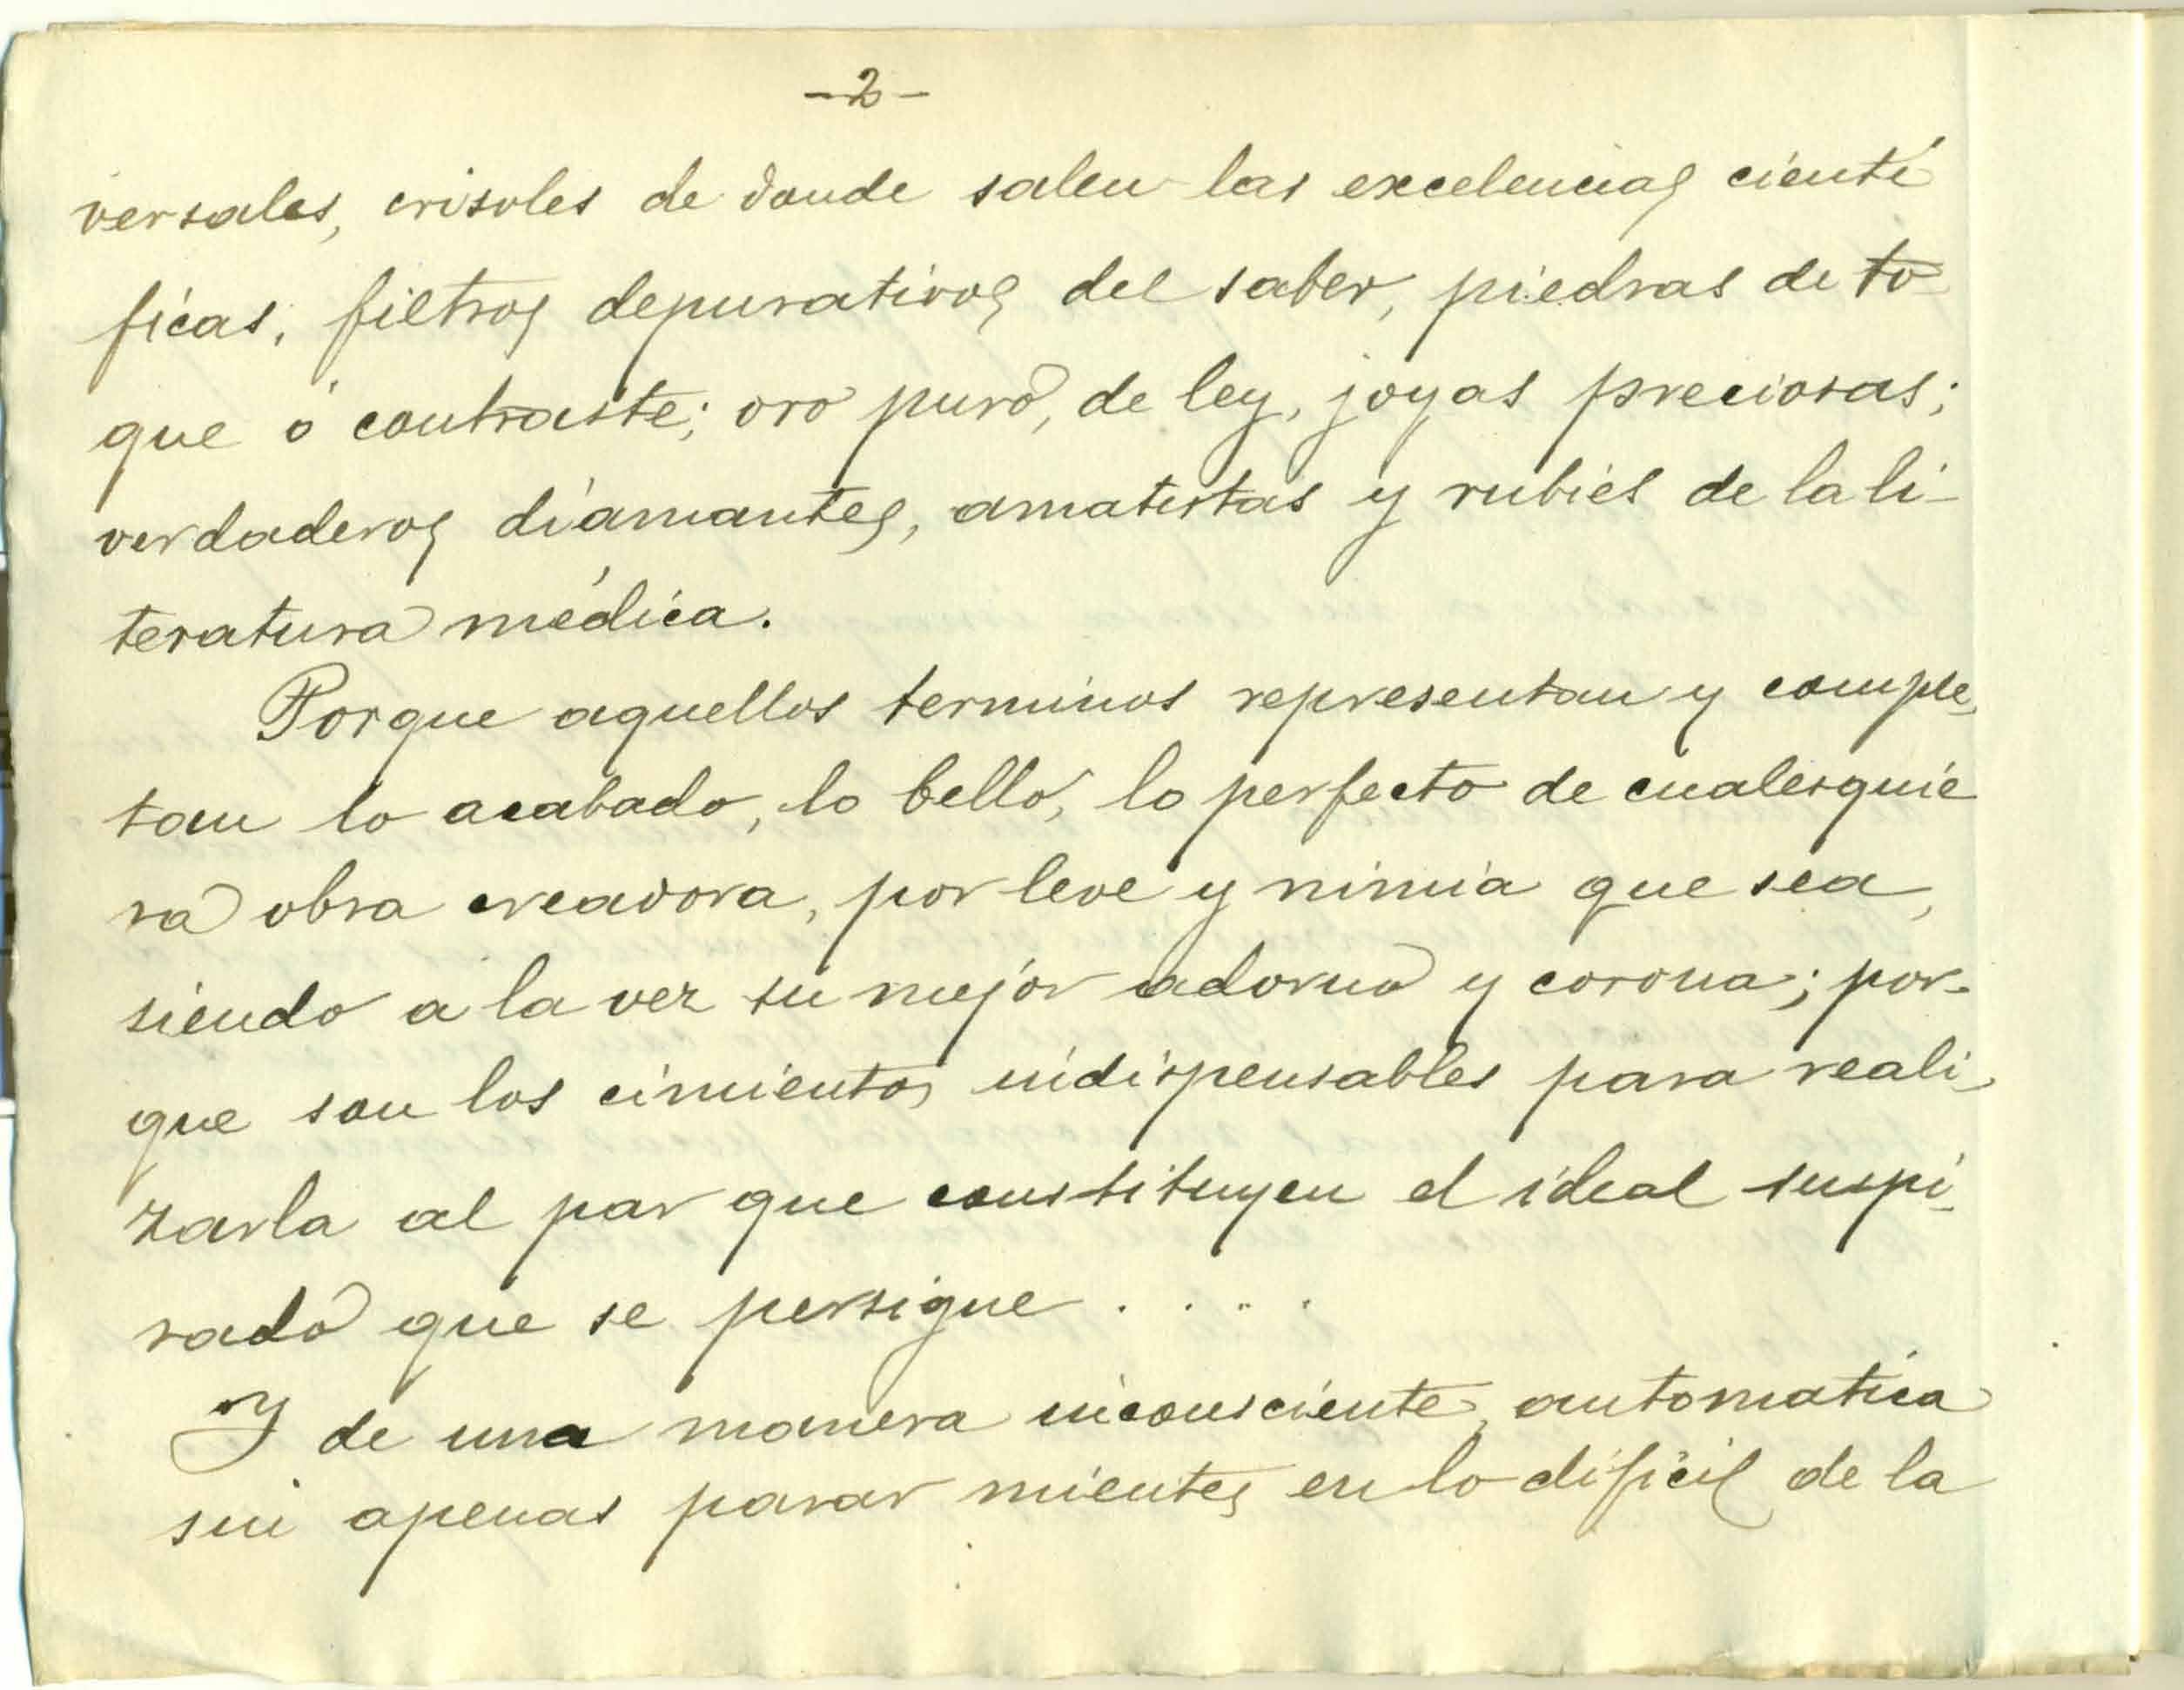 -2-
versales, crisoles de donde salen las excelencias cientí
ficas, filtros depurativos del saber, piedras de to-
que ó contraste; oro puro, de ley, joyas preciosas;
verdaderos diamantes, amatistas y rubíes de la li-
teratura médica.
Porque aquellos terminos representan y comple-
tan lo acabado, lo bello, lo perfecto de cualesquie
ra obra creadora, por leve y nimia que sea,
siendo a la vez su mejor adorno y corona; por-
que son los cimientos indispensables para reali-
zarla al par que constituyen el ideal suspi-
rado que se persigue . . . . .
Y de una manera inconsciente, automatica
sin apenas parar mientes en lo difícil de la